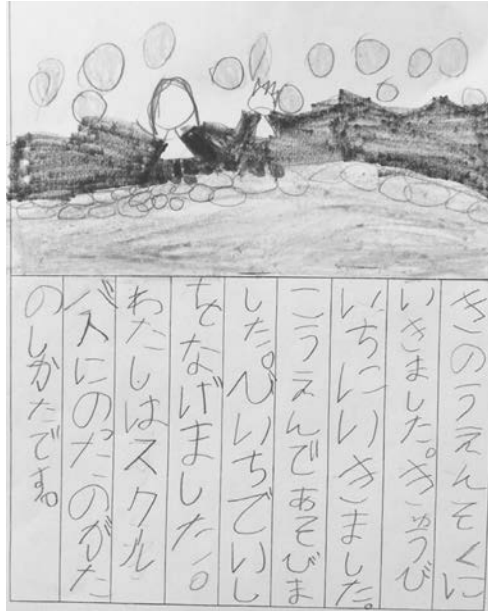 きのうえんそくに
いきました。きゅうび
いちにいきました。
こうえんであそびま
した。びいちでいし
をなげました。
わたしはスクル
バスにのたのがた
のしかたです。